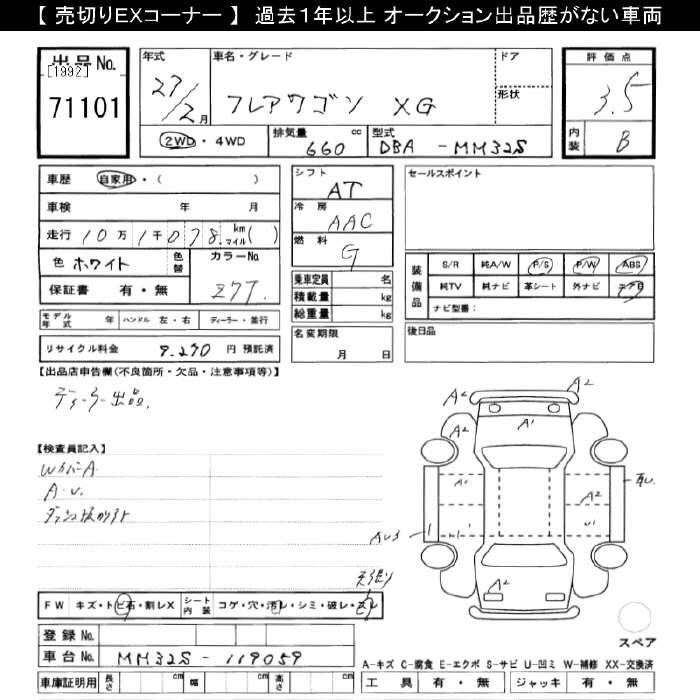 【 売切りEXコーナー 】 過去１年以上 オークション出品歴がない車両
出品No.
[1992]
71101
年式
27/2月
車名・グレード
フレアワゴン XG
ドア
形状
評価点
3.5
内装 B
2WD・4WD
排気量 660 cc
型式 DBA - MM32S
車歴 自家用・( )
車検 年 月
走行 10万1千078 km マイル( )
色 ホワイト 色替
カラーNo. Z7T.
保証書 有・無
モデル年式 年 ハンドル 左・右 ディーラー・並行
リサイクル料金 9.270 円 預託済
シフト AT
冷房 AAC
燃料 G
乗車定員 名
積載量 kg
総重量 kg
名変期限
月 日
セールスポイント
装備品
S/R 純A/W P/S P/W ABS
純TV 純ナビ 革シート 外ナビ エアB
ナビ型番：
後日品
【出品店申告欄(不良箇所・欠品・注意事項等)】
ディーラー出品.
【検査員記入】
WカバーA
A.U.
FW キズ・トビ石・割レX シート内装 コゲ・穴・汚レ・シミ・破レ・スレ
天張り
登録No.
車台No. MM32S - 119059
車庫証明用 長さ cm 幅 cm 高さ cm
A2 A2
A2 A1
A1 A2
A1 U1
AU3
A2
スペア
A-キズ C-腐食 E-エクボ S-サビ U-凹ミ W-補修 XX-交換済
工具 有・無 ジャッキ 有・無